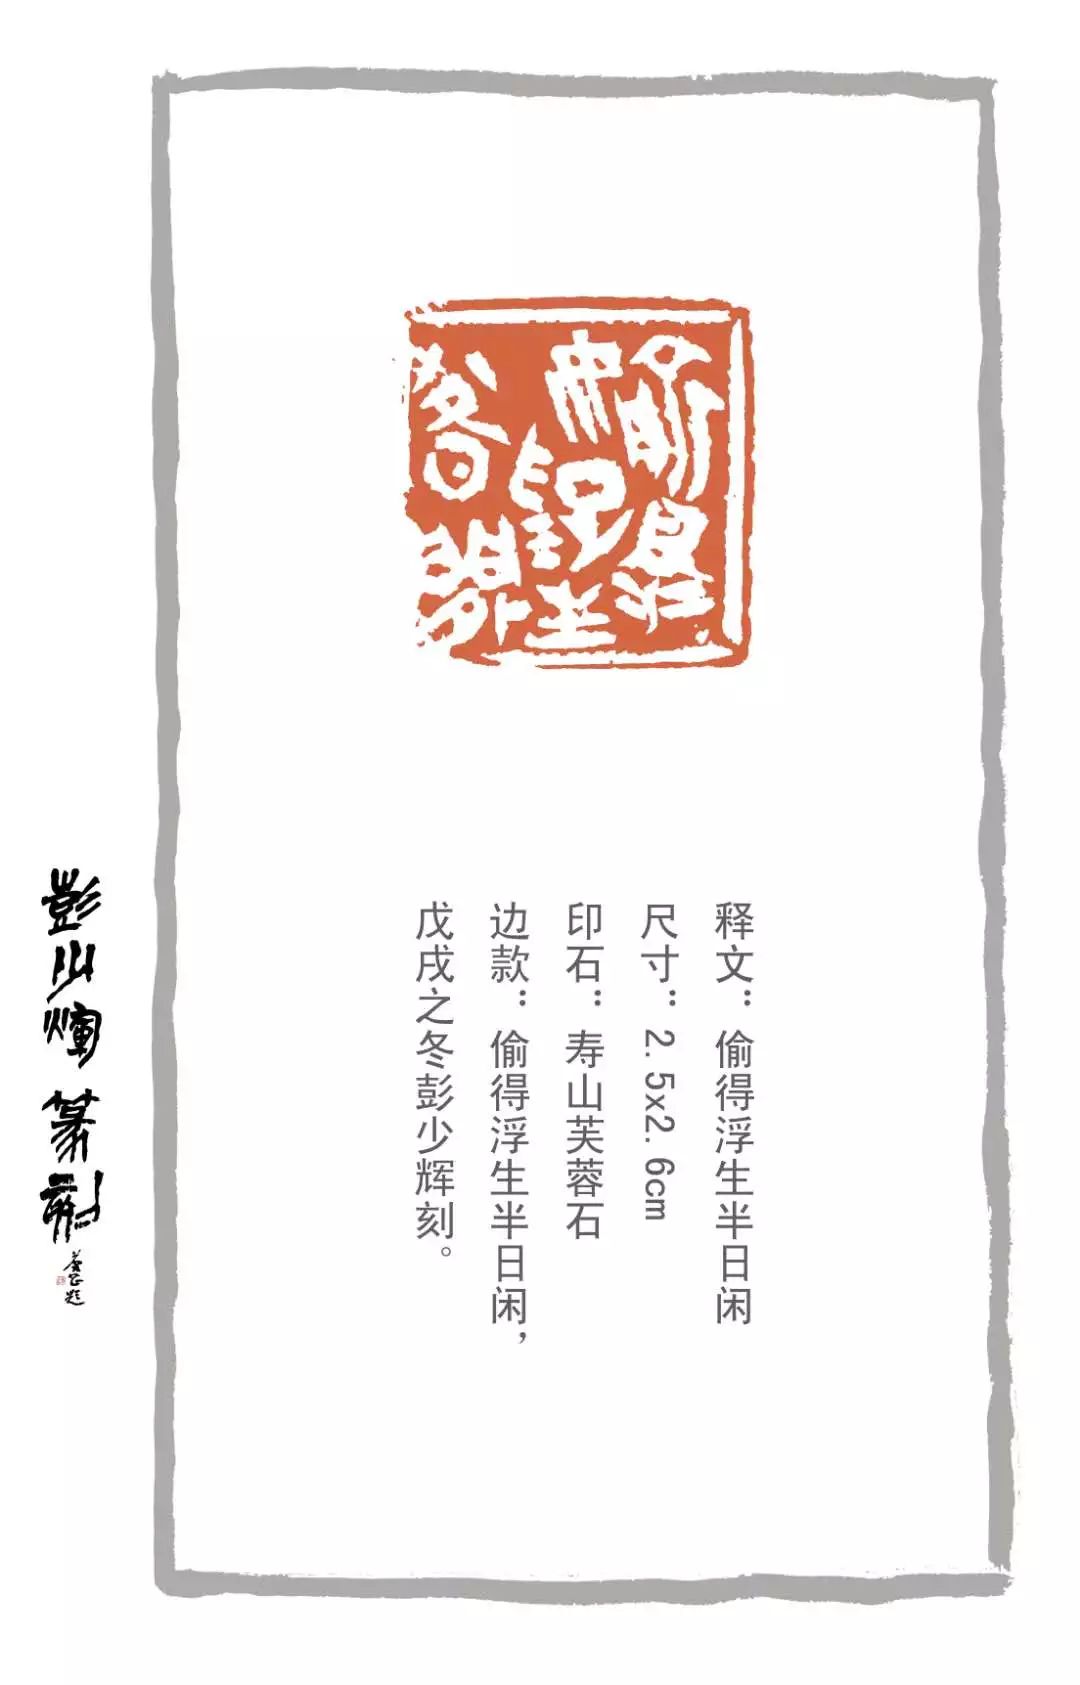 释文：偷得浮生半日闲
尺寸：2.5x2.6cm
印石：寿山芙蓉石
边款：偷得浮生半日闲，
戊戌之冬彭少辉刻。
彭少辉篆刻